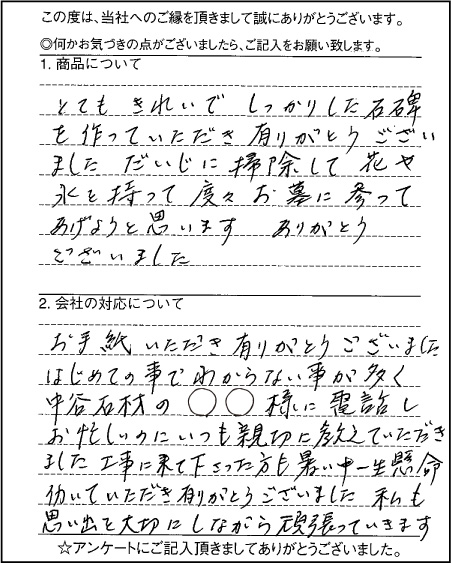 この度は、当社へのご縁を頂きまして誠にありがとうございます。
◎何かお気づきの点がございましたら、ご記入をお願い致します。
1. 商品について
とても きれいで しっかりした石碑
を作っていただき 有りがとう ござい
ました だいじに 掃除して 花や
水を持って 度々 お墓に 参って
あげようと思います ありがとう
ございました
2. 会社の対応について
お手紙 いただき 有りがとう ございました
はじめての事で わからない事が 多く
中谷石材の ○○ 様に 電話し
お忙しいのに いつも 親切に教えていただき
ました 工事に来て下さった方も 暑い中一生懸命
働いていただき有りがとうございました 私も
思い出を大切にしながら 頑張っていきます
☆アンケートにご記入頂きましてありがとうございました。